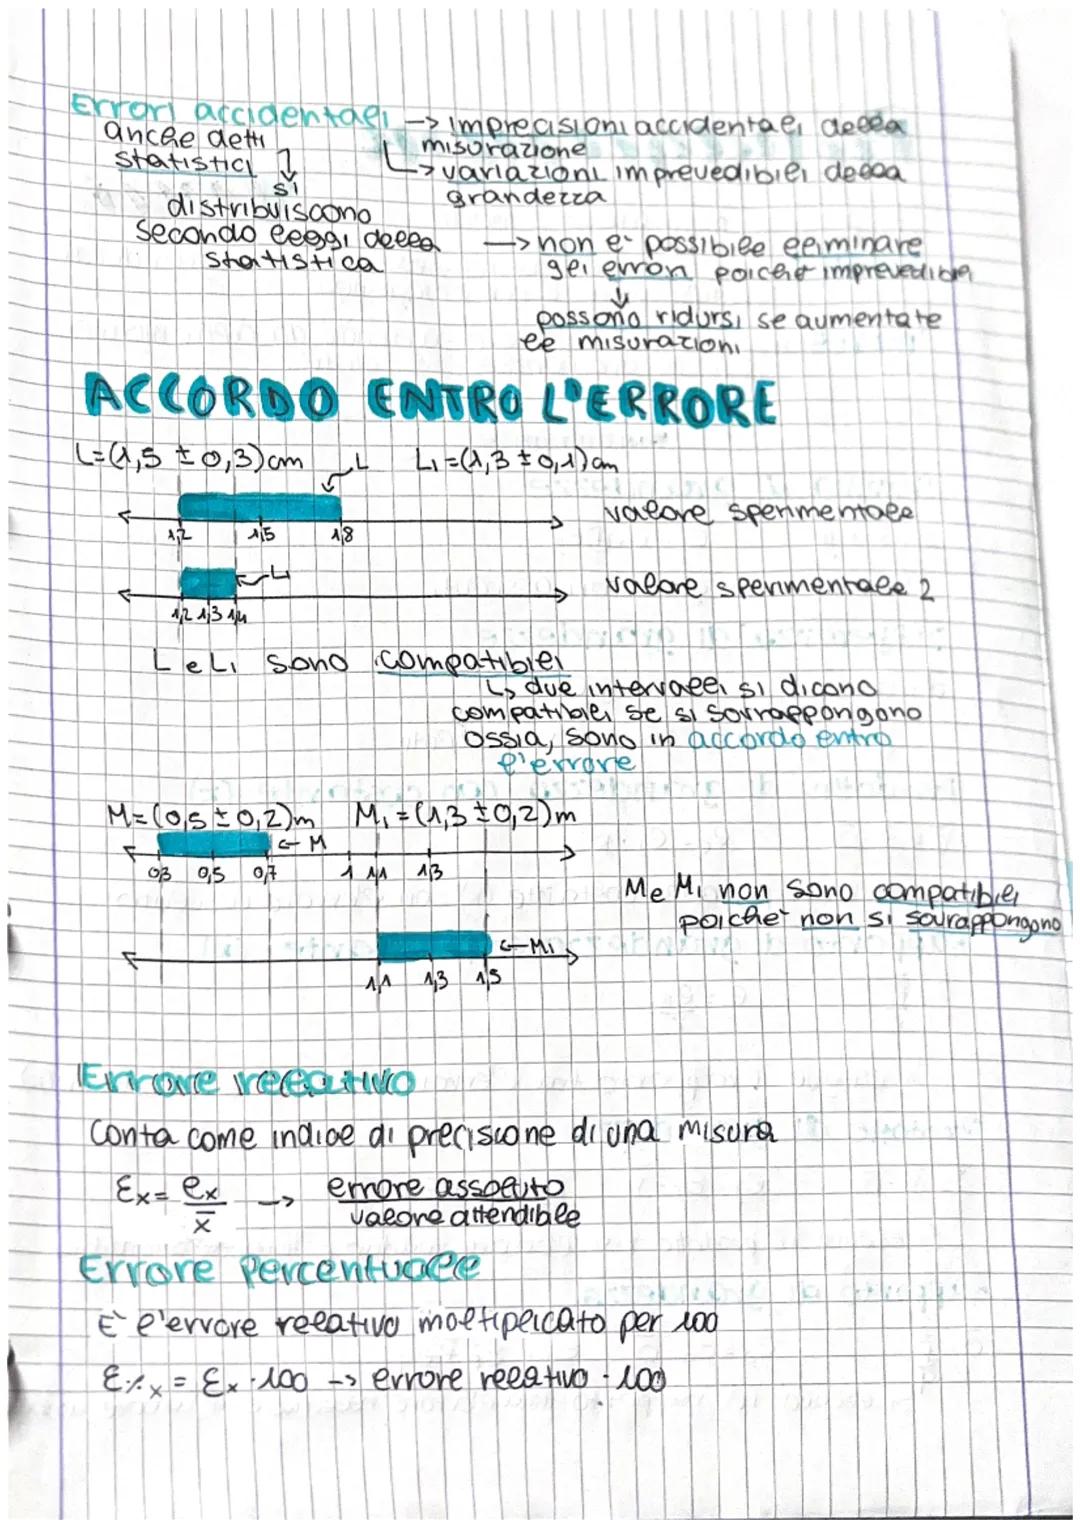 Errori accidentali → imprecisioni accidentali della
anche detti misurazione
statistici ↳ variazioni imprevedibili della
si grandezza
distribuiscono
secondo leggi della → non è possibile eliminare
statistica gli errori poiché imprevedibili
possono ridursi se aumentate
le misurazioni
ACCORDO ENTRO L'ERRORE
L=(1,5 ± 0,3)cm L L₁=(1,3 ± 0,1)cm
valore sperimentale
1,2 1,5 1,8
L₁ valore sperimentale 2
1,2 1,3 1,4
L e L₁ sono compatibili
↳ due intervalli si dicono
compatibili se si sovrappongono
ossia, sono in accordo entro
l'errore
M=(0,5 ± 0,2)m M₁=(1,3 ± 0,2)m
← M
0,3 0,5 0,7 1 1,1 1,3
M e M₁ non sono compatibili
poiché non si sovrappongono
← M₁
1,1 1,3 1,5
Errore relativo
Conta come indice di precisione di una misura
Ɛx = ex → errore assoluto
x̄ valore attendibile
Errore percentuale
È l'errore relativo moltiplicato per 100
Ɛ%x = Ɛx · 100 → errore relativo · 100